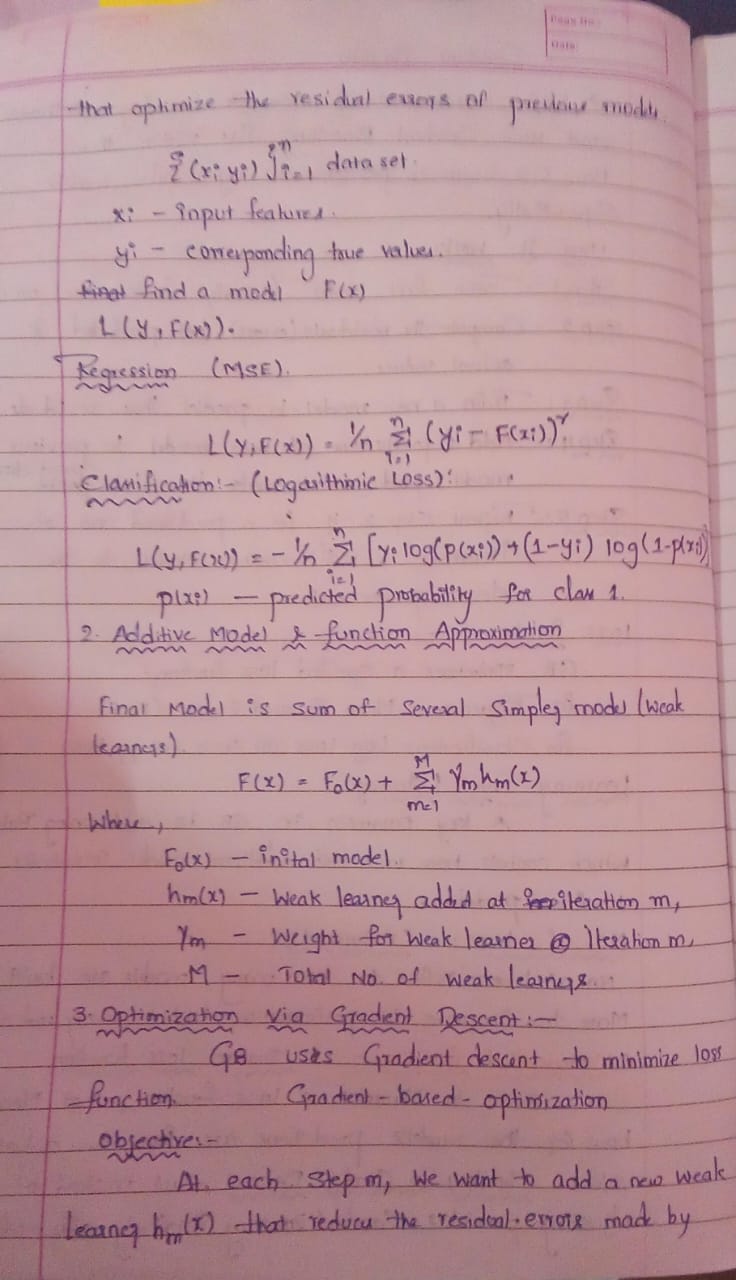 Page No:
Date:
that optimize the residual errors of previous models.
{(xi yi)}ⁿi=1 data set.
xi - input features.
yi - corresponding true values.
final find a model F(x)
L(y, F(x)).
Regression (MSE).
L(y, F(x)) = 1/n Σⁿi=1 (yi - F(xi))²
Classification:- (Logarithmic Loss):
L(y, F(x)) = - 1/n Σⁿi=1 [yi log(p(xi)) + (1-yi) log(1-p(xi))]
p(xi) — predicted probability for class 1.
2. Additive Model & function Approximation
Final Model is sum of several simpler model (weak
learners).
F(x) = F₀(x) + Σᴹm=1 γm hm(x)
Where,
F₀(x) - inital model.
hm(x) - Weak learner added at iteration m,
γm - Weight for weak learner @ Iteration m,
M - Total No. of weak learners.
3. Optimization Via Gradient Descent:-
GB uses Gradient descent to minimize loss
function. Gradient-based-optimization
Objective:-
At each step m, we want to add a new weak
learner hm(x) that reduces the residual errors made by